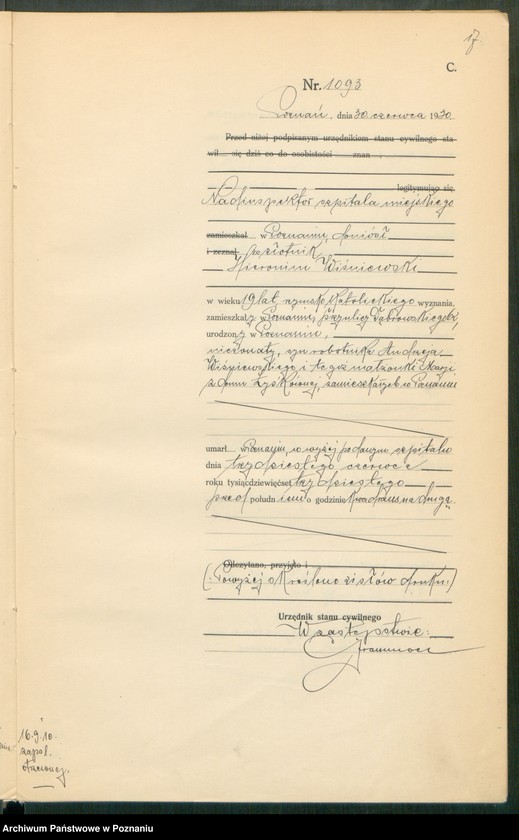 17.
C.
Nr. 1093
Poznań, dnia 30 czerwca 1930.
Przed niżej podpisanym urzędnikiem stanu cywilnego sta
wił się dziś co do osobistości znan
legitymując się
Nadinspektor szpitala miejskiego
zamieszkał w Poznaniu, doniósł
i zeznał, że złotnik
Hieronim Wiśniewski
w wieku 19 lat, rzymsko katolickiego wyznania,
zamieszkały w Poznaniu, przy ulicy Dąbrowskiego
urodzony w Poznaniu,
nieżonaty, syn robotnika Andrzeja
Wiśniewskiego i tegoż małżonki Marji
z domu zamieszkałych w Poznaniu
umarł w Poznaniu, w wyżej podanym szpitalu
dnia trzydziestego czerwca
roku tysiącdziewięćset trzydziestego
przed południem o godzinie kwadrans na drugą
Odczytano, przyjęto i
(:Powyżej skreślono słów druku:)
Urzędnik stanu cywilnego
W zastępstwie:
16.9.10.
zapal.
otrzewnej.
Archiwum Państwowe w Poznaniu